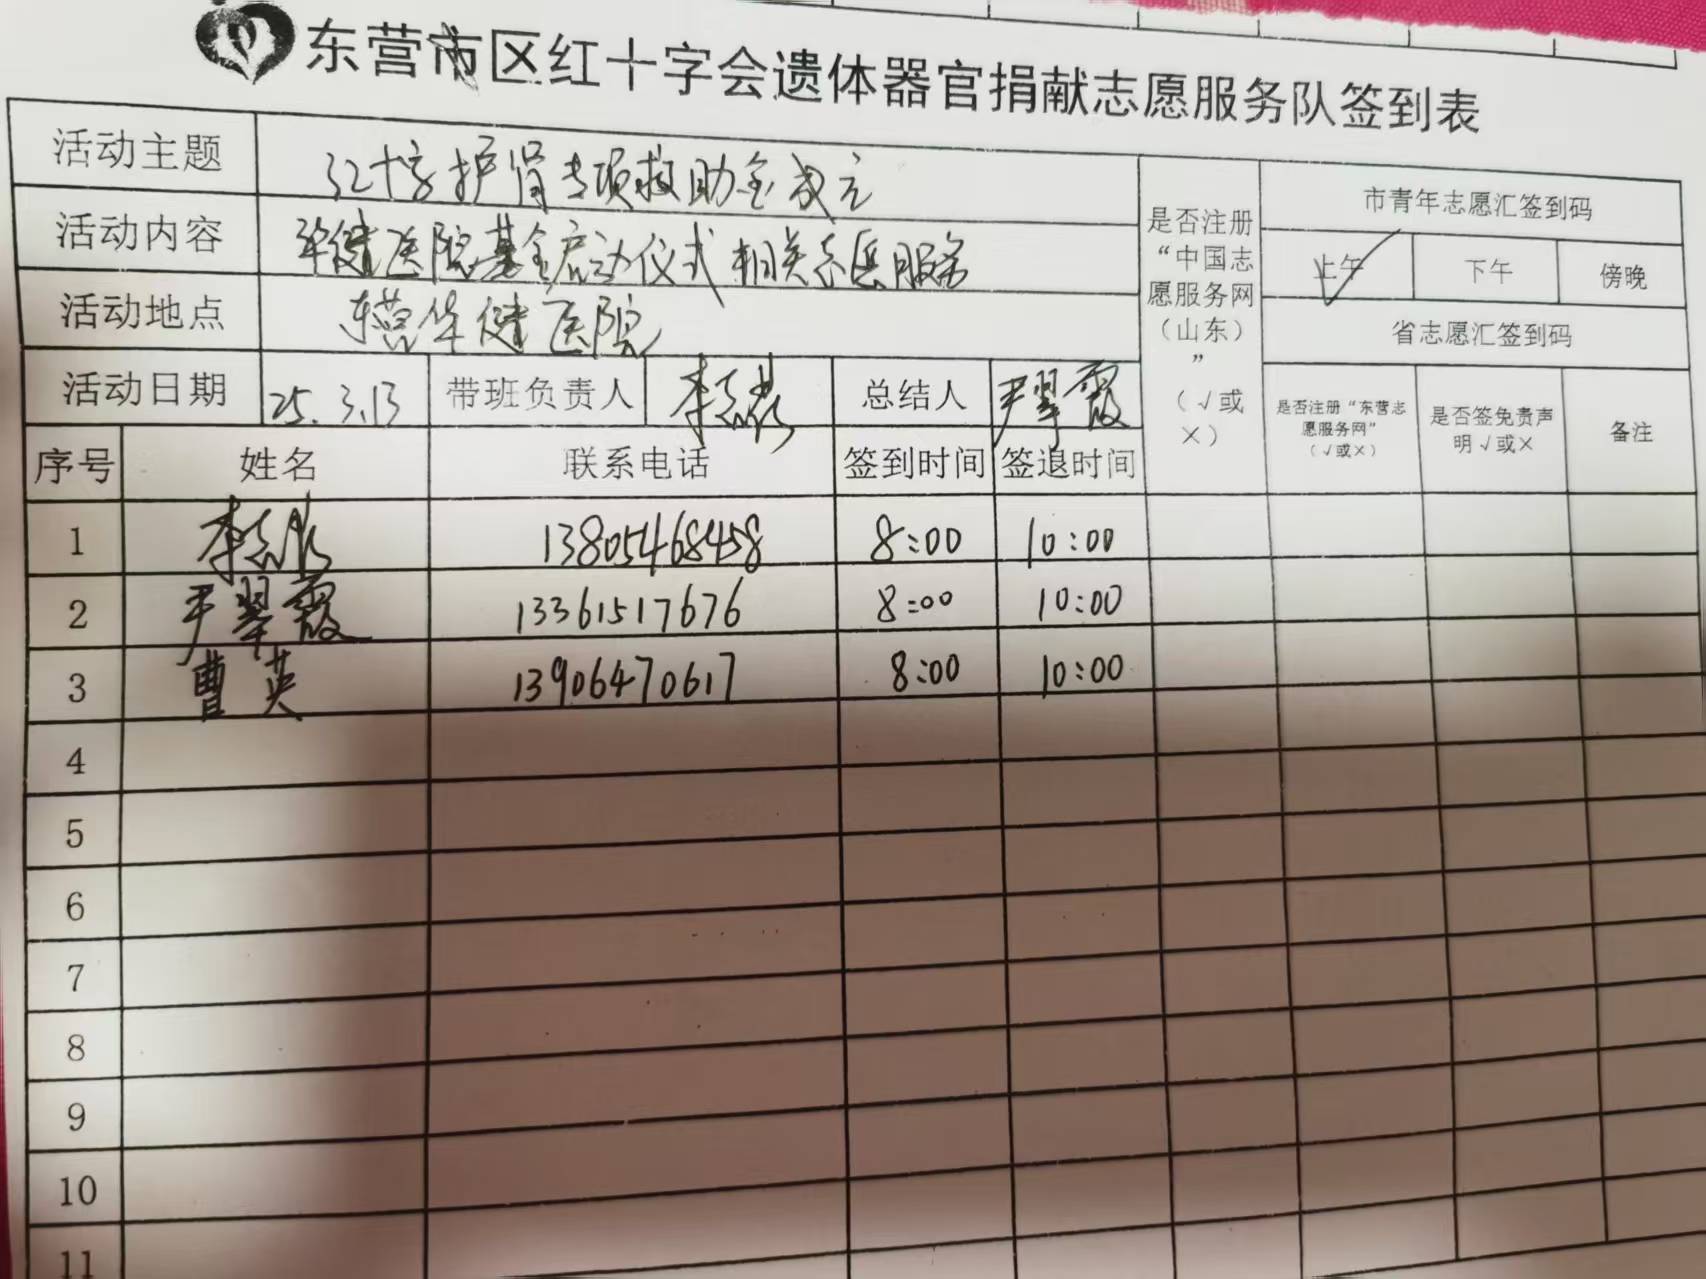 东营市区红十字会遗体器官捐献志愿服务队签到表
活动主题 红十字护肾专项救助金成立
活动内容 华健医院基金启动仪式相关志愿服务
活动地点 东营华健医院
是否注册“中国志愿服务网（山东）”（√或×）
市青年志愿汇签到码
上午 ✓ 下午 傍晚
省志愿汇签到码
活动日期 25.3.13 带班负责人 李 总结人 尹翠霞
是否注册“东营志愿服务网”（√或×） 是否签免责声明√或× 备注
序号 姓名 联系电话 签到时间 签退时间
1 李 13805468458 8:00 10:00
2 尹翠霞 13361517676 8:00 10:00
3 曹英 13906470617 8:00 10:00
4
5
6
7
8
9
10
11